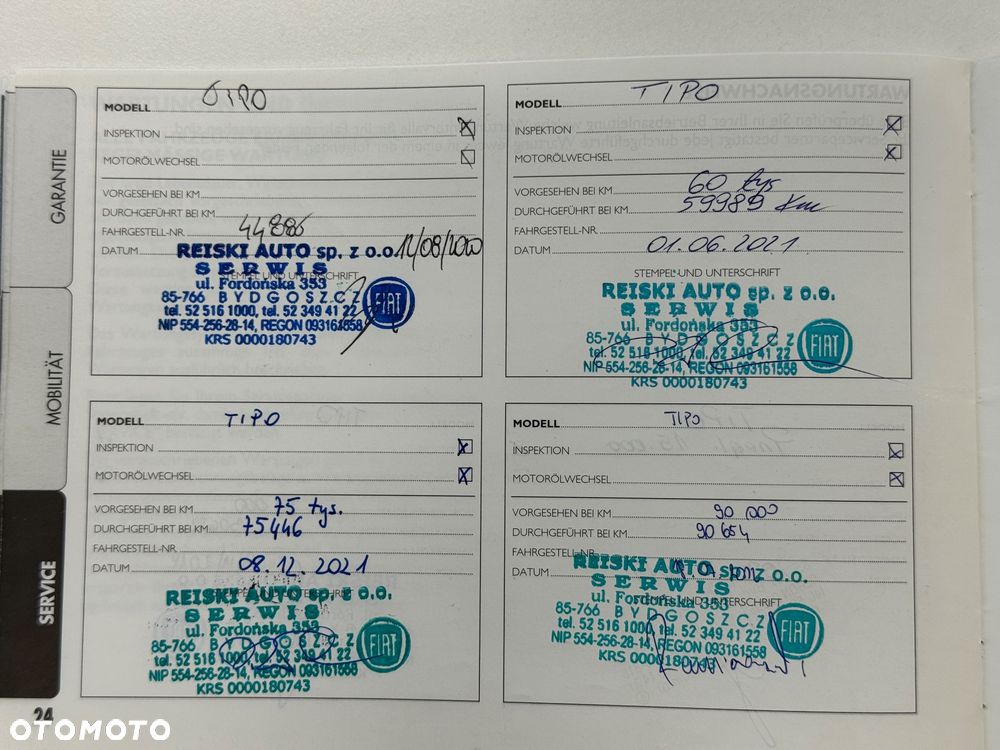 GARANTIE
MOBILITÄT
SERVICE
MODELL TIPO
INSPEKTION X
MOTORÖLWECHSEL
VORGESEHEN BEI KM
DURCHGEFÜHRT BEI KM
FAHRGESTELL-NR. 44886
DATUM 12/08/2020
STEMPEL UND UNTERSCHRIFT
REISKI AUTO sp. z o.o.
SERWIS
ul. Fordońska 353
85-766 BYDGOSZCZ
tel. 52 516 1000, tel. 52 349 41 22
NIP 554-256-28-14, REGON 093161558
KRS 0000180743
FIAT
MODELL TIPO
INSPEKTION X
MOTORÖLWECHSEL X
VORGESEHEN BEI KM 60 tys
DURCHGEFÜHRT BEI KM 59989 Km
FAHRGESTELL-NR.
DATUM 01.06.2021
STEMPEL UND UNTERSCHRIFT
REISKI AUTO sp. z o.o.
SERWIS
ul. Fordońska 353
85-766 BYDGOSZCZ
tel. 52 516 1000, tel. 52 349 41 22
NIP 554-256-28-14, REGON 093161558
KRS 0000180743
FIAT
MODELL TIPO
INSPEKTION X
MOTORÖLWECHSEL X
VORGESEHEN BEI KM 75 tys.
DURCHGEFÜHRT BEI KM 75446
FAHRGESTELL-NR.
DATUM 08.12.2021
STEMPEL UND UNTERSCHRIFT
REISKI AUTO sp. z o.o.
SERWIS
ul. Fordońska 353
85-766 BYDGOSZCZ
tel. 52 516 1000, tel. 52 349 41 22
NIP 554-256-28-14, REGON 093161558
KRS 0000180743
FIAT
MODELL TIPO
INSPEKTION X
MOTORÖLWECHSEL X
VORGESEHEN BEI KM 90 000
DURCHGEFÜHRT BEI KM 90 654
FAHRGESTELL-NR.
DATUM
STEMPEL UND UNTERSCHRIFT
REISKI AUTO sp. z o.o.
SERWIS
ul. Fordońska 353
85-766 BYDGOSZCZ
tel. 52 516 1000, tel. 52 349 41 22
NIP 554-256-28-14, REGON 093161558
KRS 0000180743
FIAT
24
OTOMOTO